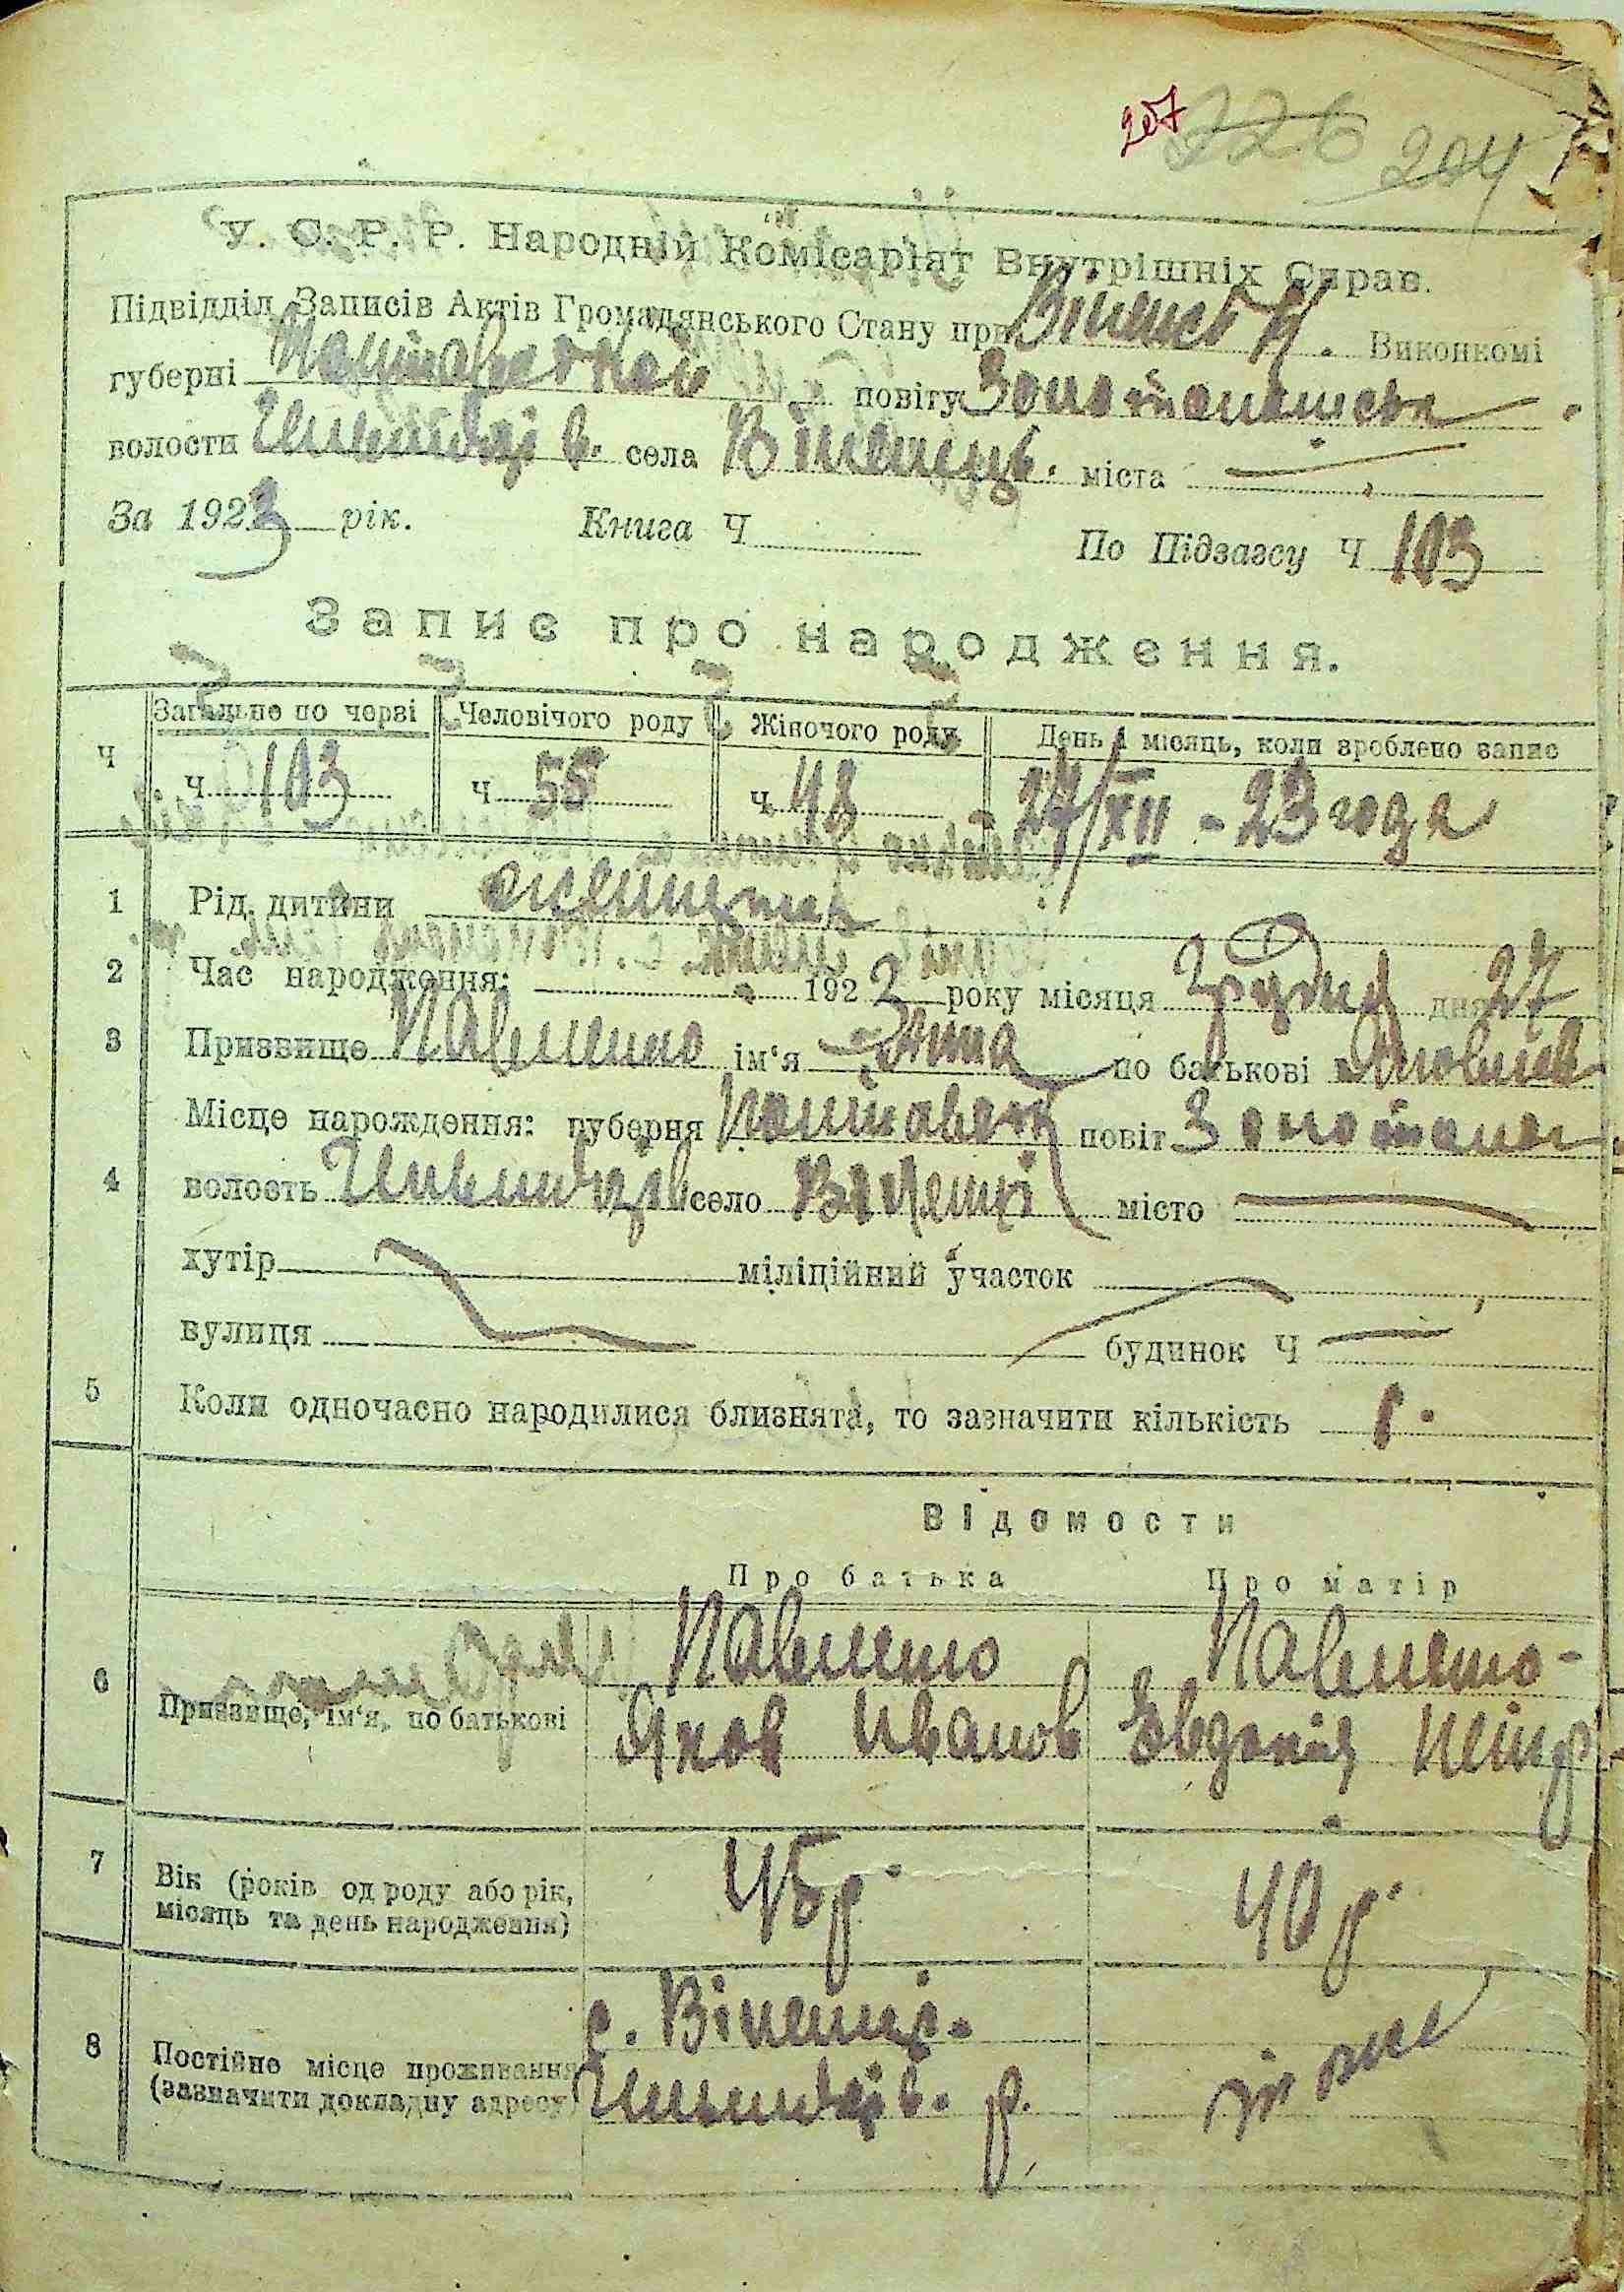 207 226 204
У. С. Р. Р. Народній Комісаріят Внутрішніх Справ.
Підвідділ Записів Актів Громадянського Стану при Виконкомі
губерні Полтавської повіту Золотоношськ
волости села Віненці. міста —
За 1923 рік. Книга Ч По Підзагсу Ч 103
Запис про народження.
Загальне по черзі Человічого роду Жіночого роду День і місяць, коли зроблено запис
Ч Ч 103 Ч 55 Ч 48 27/XII - 23 года
1 Рід дитини
2 Час народження: 1923 року місяця Грудня дня 27
3 Призвище Павленко ім‘я Анна по батькові Яковлев
Місце народження: губерня Полтавськ повіт Золотонос
4 волость село Віненці місто —
хутір — міліційний участок —
вулиця — будинок Ч —
5 Коли одночасно народилися близнята, то зазначити кількість 1.
Відомости
Про батька Про матір
Павленко Павленко-
6 Призвище, ім‘я, по батькові Яков Иванов Евдокія Петр
7 Вік (років од роду або рік, 45 р. 40 р.
місяць та день народження)
с. Віненці.
8 Постійне місце проживання
(зазначити докладну адресу) р.